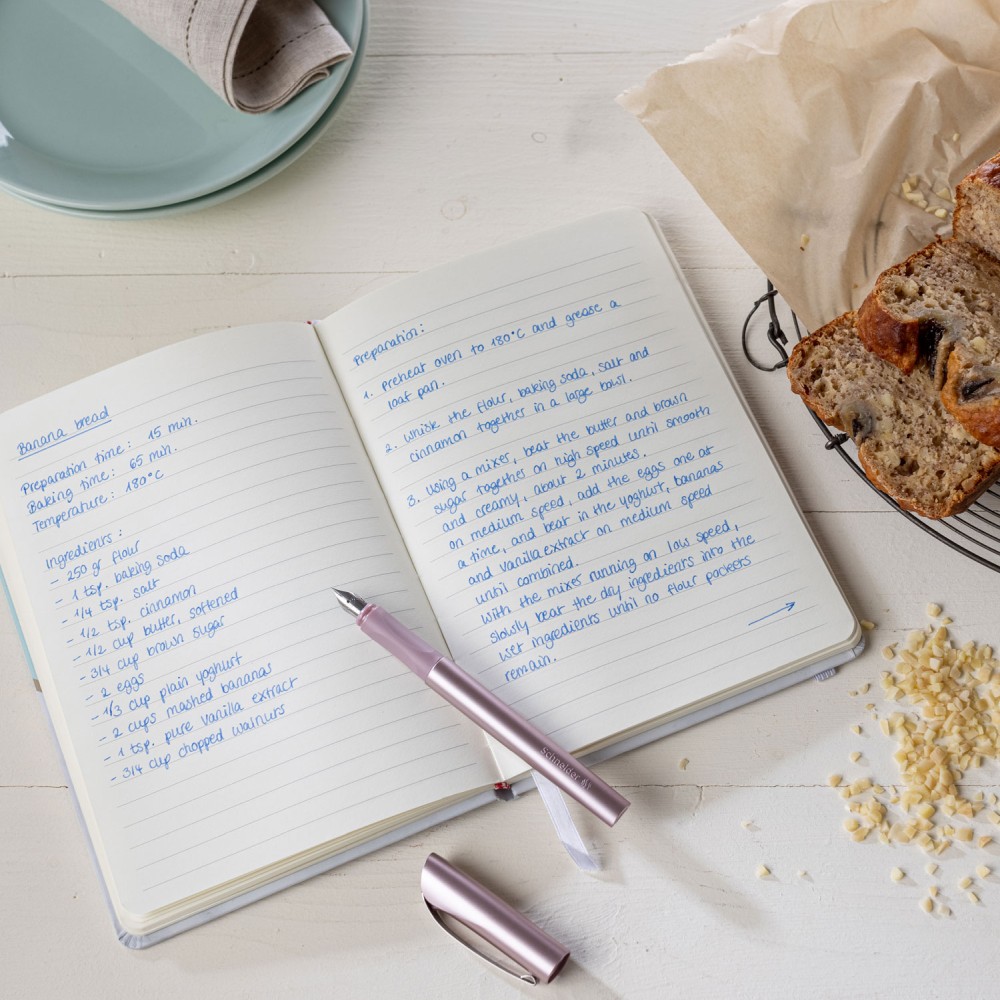 Banana bread
Preparation time: 15 min.
Baking time: 65 min.
Temperature: 180°C
Ingredients:
- 250 gr flour
- 1 tsp. baking soda
- 1/4 tsp. salt
- 1/2 tsp. cinnamon
- 1/2 cup butter, softened
- 3/4 cup brown sugar
- 2 eggs
- 1/3 cup plain yoghurt
- 2 cups mashed bananas
- 1 tsp. pure vanilla extract
- 3/4 cup chopped walnuts
Preparation:
1. Preheat oven to 180°C and grease a
loaf pan.
2. Whisk the flour, baking soda, salt and
cinnamon together in a large bowl.
3. Using a mixer, beat the butter and brown
sugar together on high speed until smooth
and creamy, about 2 minutes.
on medium speed, add the eggs one at
a time, and beat in the yoghurt, bananas
and vanilla extract on medium speed
until combined.
With the mixer running on low speed,
slowly beat the dry ingredients into the
wet ingredients until no flour pockets
remain.
Schneider